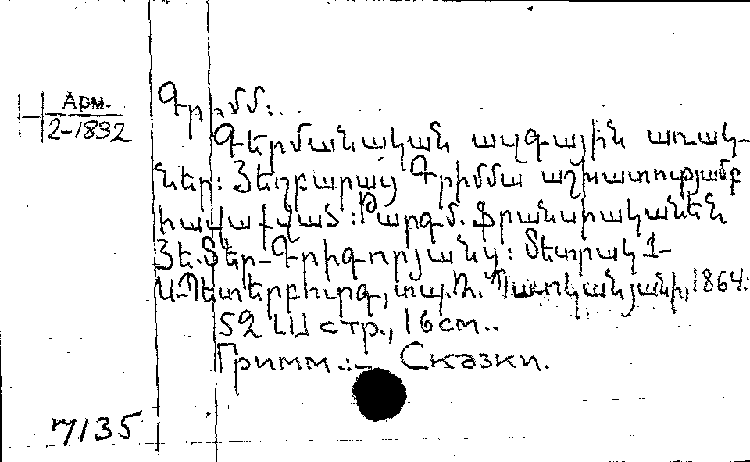 Арм.
2-1892
Գրիմմ:
Գերմանական ազգային առակ-
ներ: Յեղբարայց Գրիմմա աշխատությամբ
հավաքված: Թարգմ. ֆրանսիականեն
Յե. Տեր-Գրիգորյանց: Տետրակ 1-
Ս.Պետերբուրգ, տպ. Ռ. Պատկանյանի, 1864:
52 стр., 16см..
Гримм.:- Сказки.
7135